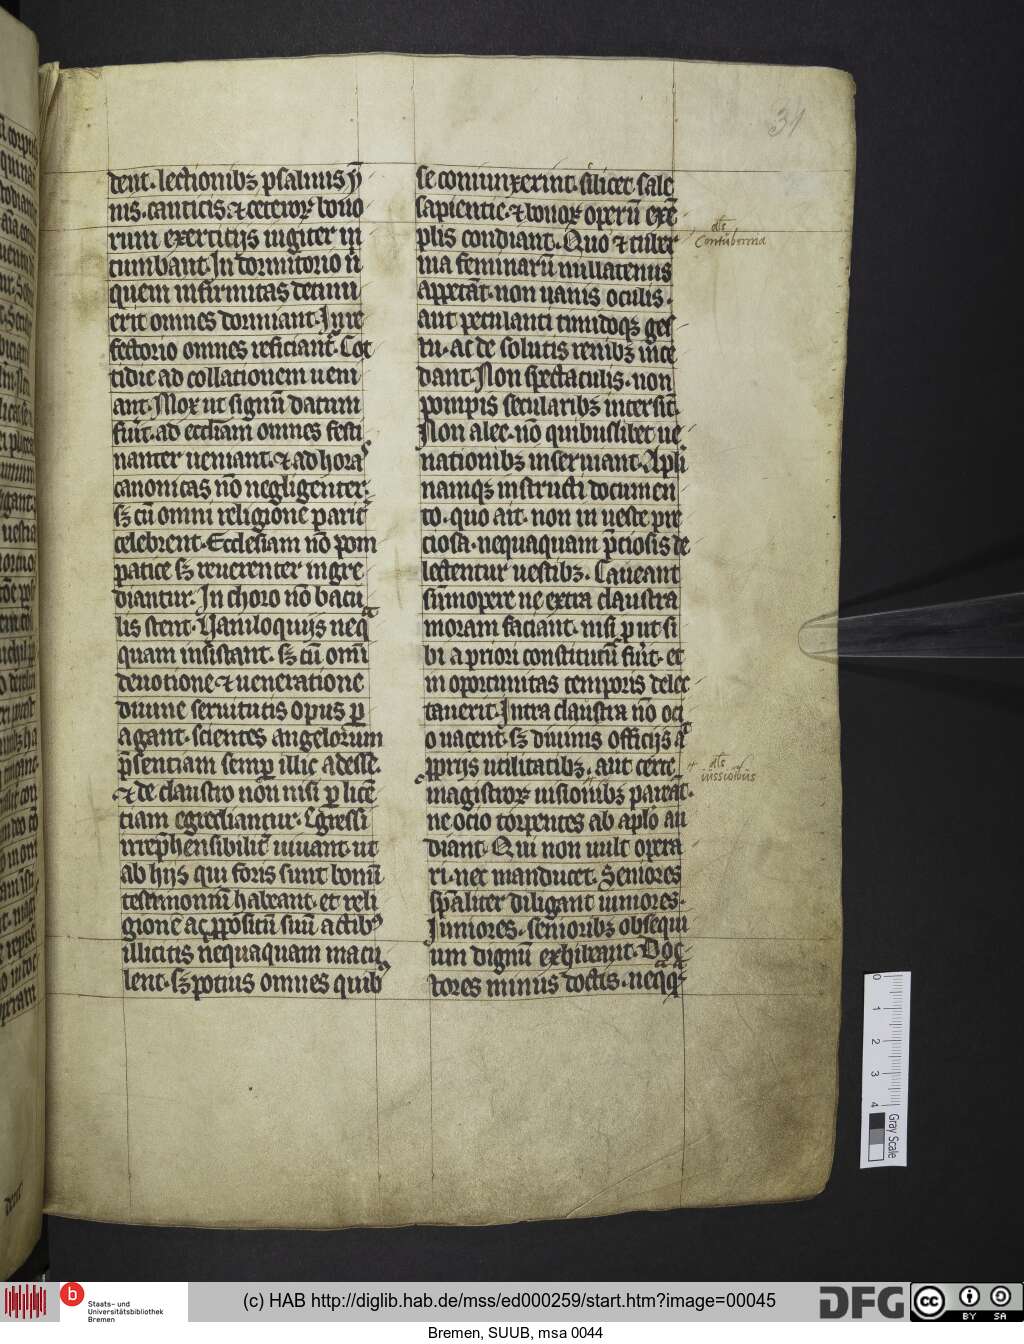 31
dent. lectionibꝫ psalmis ẏ
nis. canticis ⁊ ceteroꝝ bono
rum exercitijs iugiter in
cumbant. In dormitorio n̄
quem infirmitas detinu
erit omnes dormiant. In re
fectorio omnes reficiant᷑. Cot
tidie ad collationem ueni
ant. Mox ut signū datum
fuīt. ad eccliam omnes festi
nanter ueniant. ⁊ ad horas
canonicas nō negligenter.
sꝫ cū omni religione pariť
celebrent. Ecclesiam nō pom
patice sꝫ reuerenter ingre
diantur. In choro nō bacu
lis stent. Uaniloquijs neq̄
quam insistant. sꝫ cū omī
deuotione ⁊ ueneratione
diuine seruitutis opus ꝑ
agant. scientes angelorum
p̄sentiam semꝑ illic adesse.
⁊ de claustro non nisi ꝑ licē
tiam egrediantur. Egressi
irrep̄hensibiliť uiuant. ut
ab hijs qui foris sunt bonū
testimoniū habeant. et reli
gione ac ꝓpositū suū actibꝰ
illicitis nequaquam macu
lent. sꝫ potius omnes quibꝰ
se coniunxerint. silicet sale
sapientie. ⁊ bonoꝝ operū exē
plis condiant. Quo ⁊ tuber
nia feminarū nullatenus
appetāt. non uanis oculis.
aut petulanti tumidoqꝫ ges
tu. ac de solutis renibꝫ ince
dant. Non spectaculis. non
pompis secularibꝫ intersīt.
Non alee. nō quibuslibet ue
nationibꝫ inseruiant. Apli
namqꝫ instructi documen
to. quo ait. non in ueste pre
ciosa. nequaquam p̄ciosis de
lectentur uestibꝫ. Caueant
sūmopere ne extra claustra
moram faciant. nisi ꝓut si
bi a priori constitutū fuīt. et
in oportunitas temporis delec
tauerit. Intra claustra nō oci
o uacent. sꝫ diuinis officijs aᷓ
ꝓprijs utilitatibꝫ. aut certe
magistroꝝ uisionibꝫ pareāt.
ne ocio torpentes ab aplo au
diant. Qui non uult opera
ri. nec manducet. Seniores
sp̄aliter diligant iuniores.
Iuniores. senioribꝫ obsequi
um dignū exhibeant. Doc
tores minus doctis. neqꝫ
als
Contubernia
als
iussionibus
0 1 2 3 4
Gray Scale
b
Staats- und
Universitätsbibliothek
Bremen
(c) HAB http://diglib.hab.de/mss/ed000259/start.htm?image=00045
DFG
cc BY SA
Bremen, SUUB, msa 0044